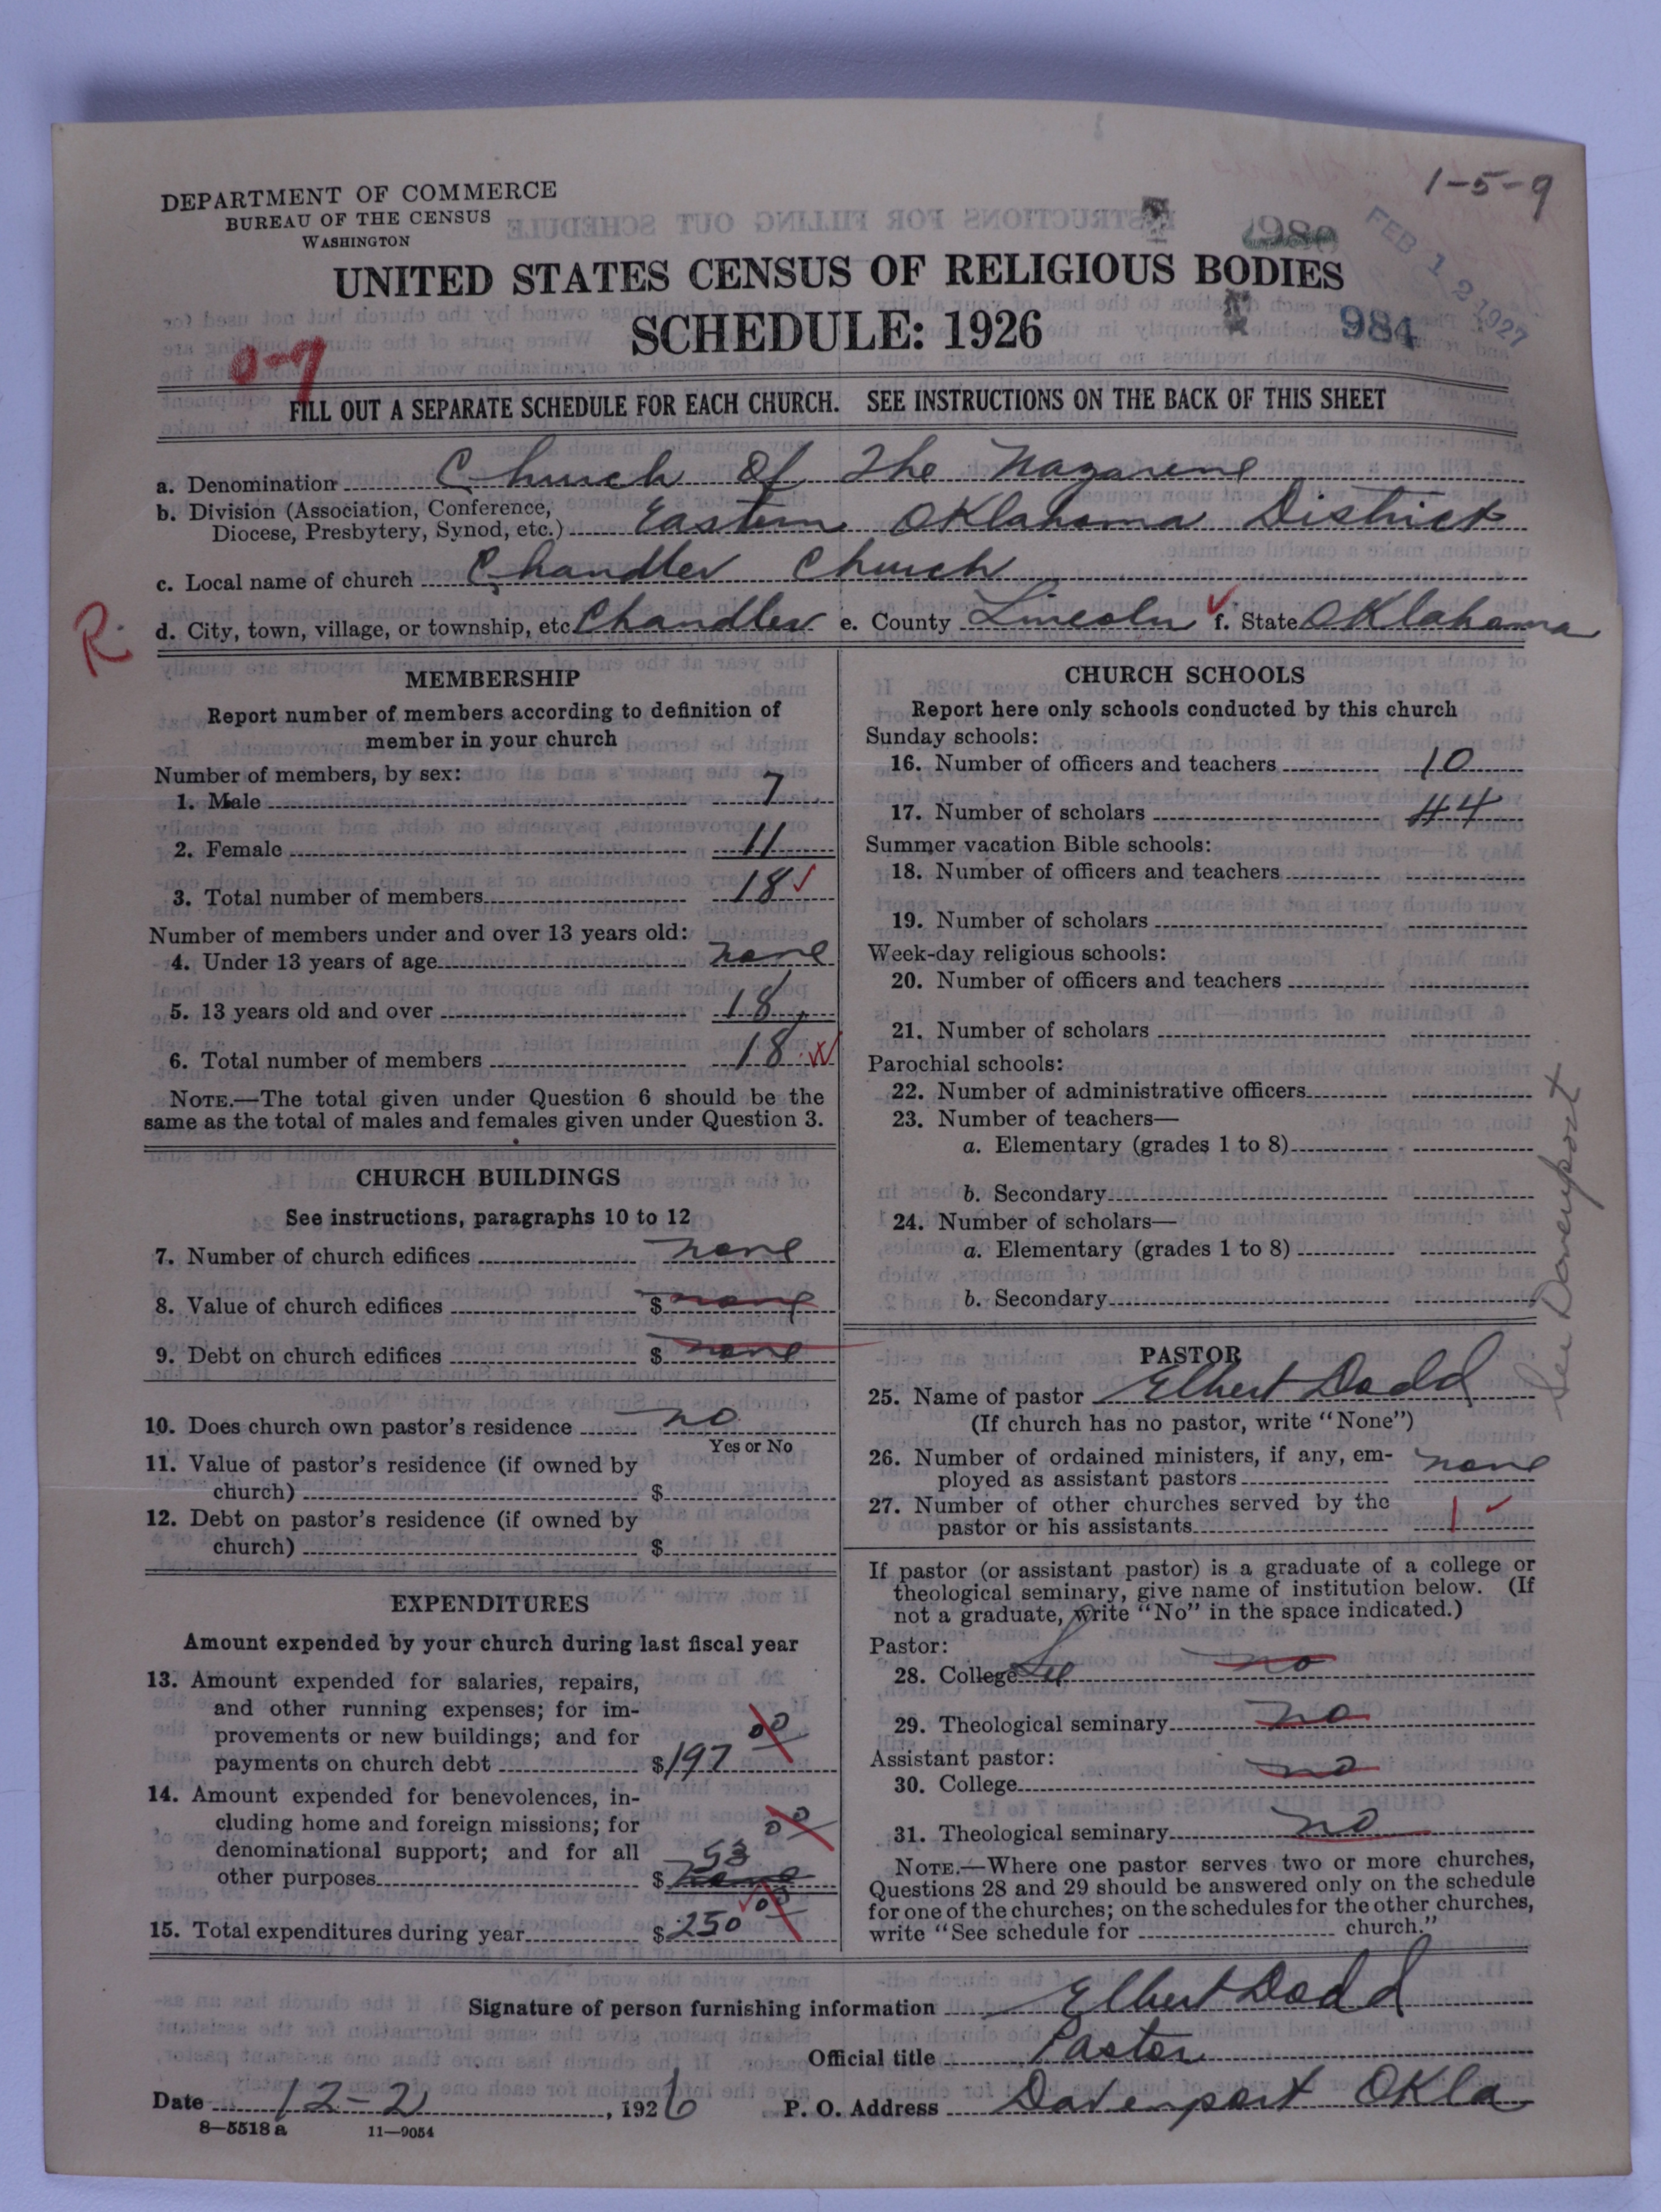 1-5-9
DEPARTMENT OF COMMERCE
BUREAU OF THE CENSUS
WASHINGTON
FEB 12 1927
UNITED STATES CENSUS OF RELIGIOUS BODIES
SCHEDULE: 1926
984
0-7
FILL OUT A SEPARATE SCHEDULE FOR EACH CHURCH. SEE INSTRUCTIONS ON THE BACK OF THIS SHEET
a. Denomination Church Of The Nazarene
b. Division (Association, Conference,
Diocese, Presbytery, Synod, etc.) Eastern Oklahoma District
c. Local name of church Chandler Church
R. d. City, town, village, or township, etc. Chandler e. County Lincoln f. State Oklahoma
MEMBERSHIP
Report number of members according to definition of
member in your church
Number of members, by sex:
1. Male 7
2. Female 11
3. Total number of members 18
Number of members under and over 13 years old:
4. Under 13 years of age none
5. 13 years old and over 18
6. Total number of members 18
NOTE.—The total given under Question 6 should be the
same as the total of males and females given under Question 3.
CHURCH BUILDINGS
See instructions, paragraphs 10 to 12
7. Number of church edifices none
8. Value of church edifices $ none
9. Debt on church edifices $ none
10. Does church own pastor's residence no
Yes or No
11. Value of pastor's residence (if owned by
church) $
12. Debt on pastor's residence (if owned by
church) $
EXPENDITURES
Amount expended by your church during last fiscal year
13. Amount expended for salaries, repairs,
and other running expenses; for im-
provements or new buildings; and for
payments on church debt $197 00
14. Amount expended for benevolences, in-
cluding home and foreign missions; for
denominational support; and for all
other purposes $ none 53 00
15. Total expenditures during year $250 00
CHURCH SCHOOLS
Report here only schools conducted by this church
Sunday schools:
16. Number of officers and teachers 10
17. Number of scholars 44
Summer vacation Bible schools:
18. Number of officers and teachers
19. Number of scholars
Week-day religious schools:
20. Number of officers and teachers
21. Number of scholars
Parochial schools:
22. Number of administrative officers
23. Number of teachers—
a. Elementary (grades 1 to 8)
b. Secondary
24. Number of scholars—
a. Elementary (grades 1 to 8)
b. Secondary
See Davenport
PASTOR
25. Name of pastor Elbert Dodd
(If church has no pastor, write "None")
26. Number of ordained ministers, if any, em-
ployed as assistant pastors none
27. Number of other churches served by the
pastor or his assistants 1
If pastor (or assistant pastor) is a graduate of a college or
theological seminary, give name of institution below. (If
not a graduate, write "No" in the space indicated.)
Pastor:
28. College See no
29. Theological seminary no
Assistant pastor:
30. College no
31. Theological seminary no
NOTE.—Where one pastor serves two or more churches,
Questions 28 and 29 should be answered only on the schedule
for one of the churches; on the schedules for the other churches,
write "See schedule for church."
Signature of person furnishing information Elbert Dodd
Official title Pastor
Date 12-2, 1926 P. O. Address Davenport Okla
8—5518a 11—9054